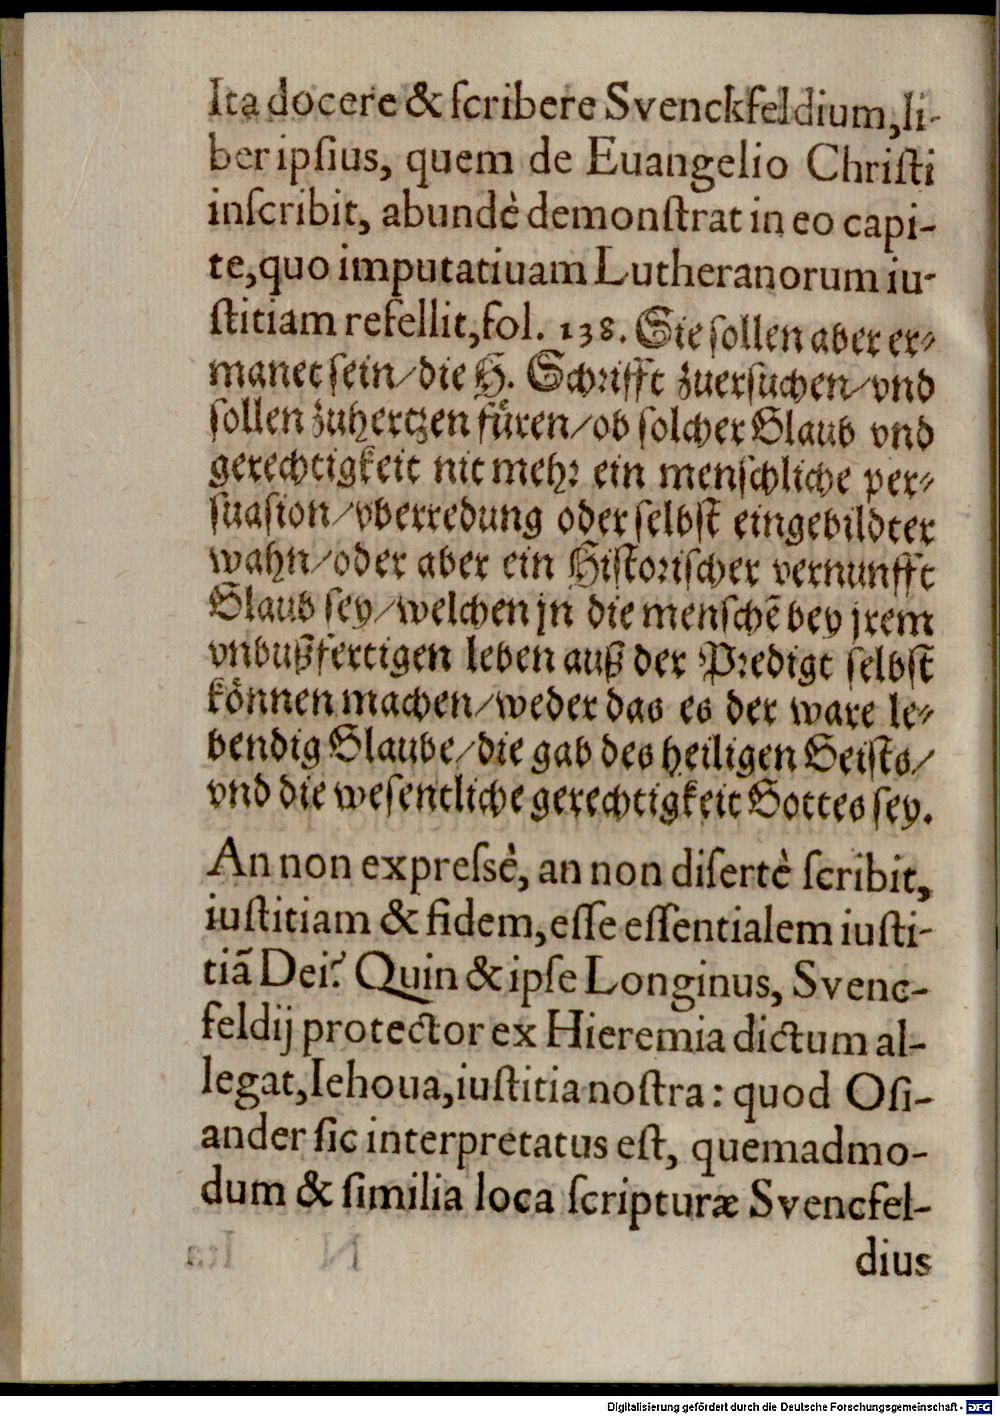 Ita docere & ſcribere Svenckfeldium, li-
ber ipſius, quem de Euangelio Chriſti
inſcribit, abundè demonſtrat in eo capi-
te, quo imputatiuam Lutheranorum iu-
ſtitiam refellit, fol. 138. Sie ſollen aber er⸗
manet ſein/ die H. Schrifft zuerſuchen/ vnd
ſollen zuhertzen fuͤren/ ob ſolcher Glaub vnd
gerechtigkeit nit mehr ein menſchliche per⸗
ſuaſion/ vberredung oder ſelbſt eingebildter
wahn/ oder aber ein Hiſtoriſcher vernunfft
Glaub ſey/ welchen jn die menſchē bey jrem
vnbußfertigen leben auß der Predigt ſelbſt
koͤnnen machen/ weder das es der ware le⸗
bendig Glaube/ die gab des heiligen Geiſts/
vnd die weſentliche gerechtigkeit Gottes ſey.
An non expreſsè, an non diſertè ſcribit,
iuſtitiam & fidem, eſſe eſſentialem iuſti-
tiā Dei? Quin & ipſe Longinus, Svenc-
feldij protector ex Hieremia dictum al-
legat, Iehoua, iuſtitia noſtra: quod Oſi-
ander ſic interpretatus eſt, quemadmo-
dum & ſimilia loca ſcripturæ Svencfel-
dius
Digitalisierung gefördert durch die Deutsche Forschungsgemeinschaft - DFG